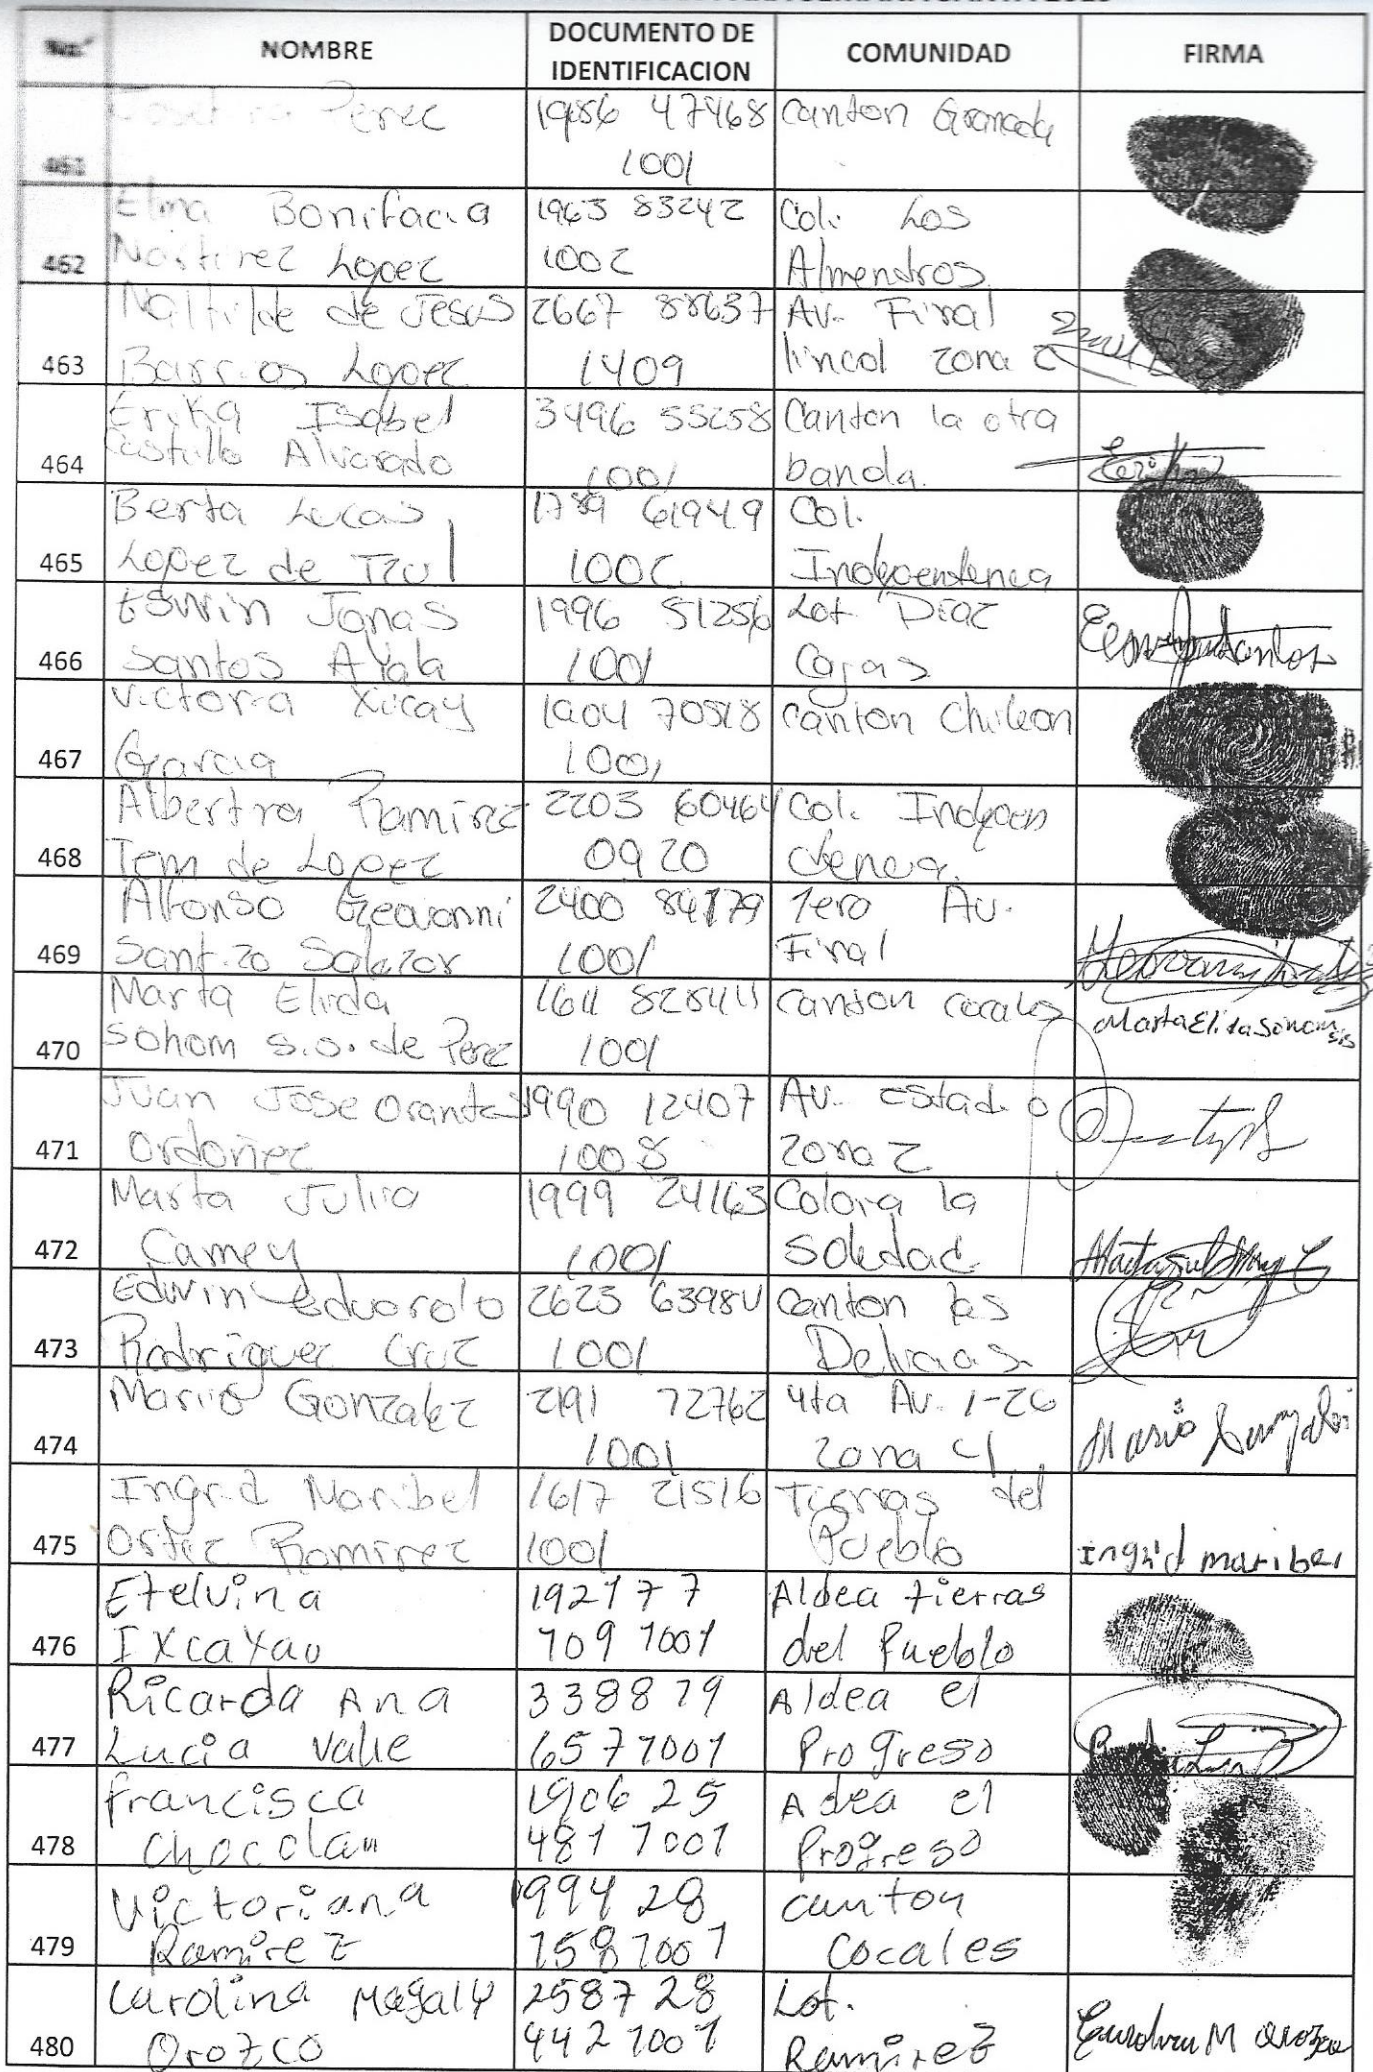 NOMBRE DOCUMENTO DE IDENTIFICACION COMUNIDAD FIRMA
461 Perec 1986 47468 1001 Canton Granada
462 Elma Bonifacia Lopez 1963 83242 1002 Col. Los Almendros
463 de Jesus Barrios Lopez 2667 88637 1409 Av. Final lincol zona 2
464 Erika Isabel Castillo Alvarado 3496 55258 1001 Canton la otra banda.
465 Berta Lucas Lopez de Tzul 1789 61949 1002 Col. Independencia
466 Eswin Jonas Santos Ayala 1996 51256 1001 Lot. Diaz Cajas
467 Victoria Xicay Garcia 1904 70518 1001 Canton
468 Ramirez Tem de Lopez 2203 60464 0920 Col. Indepen dencia.
469 Alfonso Geovanni Santizo Salazar 2400 84179 1001 1era Av. Final
470 Marta Elida Sohom s.o. de Perez 1001 Canton cocales
471 Juan Jose Orantes Ordoñez 1990 12407 1008 Av. Estadio zona 2
472 Marta Julia Camey 1999 24163 1001 Colonia la Soledad
473 Edwin Eduardo Rodriguez Cruz 2623 63984 1001 Canton las Delicias
474 Mario Gonzalez 2191 72762 1001 4ta Av. 1-26 zona 4 Mario
475 Ingrid Maribel Ortiz Ramirez 1617 21516 1001 Tierras del Pueblo Ingrid maribel
476 Etelvina Ixcayau 192177 709 1001 Aldea tierras del Pueblo
477 Ricarda Ana Lucia Valle 338879 6571001 Aldea el Progreso
478 Francisca Chocolau 1906 25 481 1001 Aldea el Progreso
479 Victoriana Ramirez 1994 28 758 1001 canton Cocales
480 Carolina Magaly Orozco 2587 28 442 1001 Lot. Ramirez